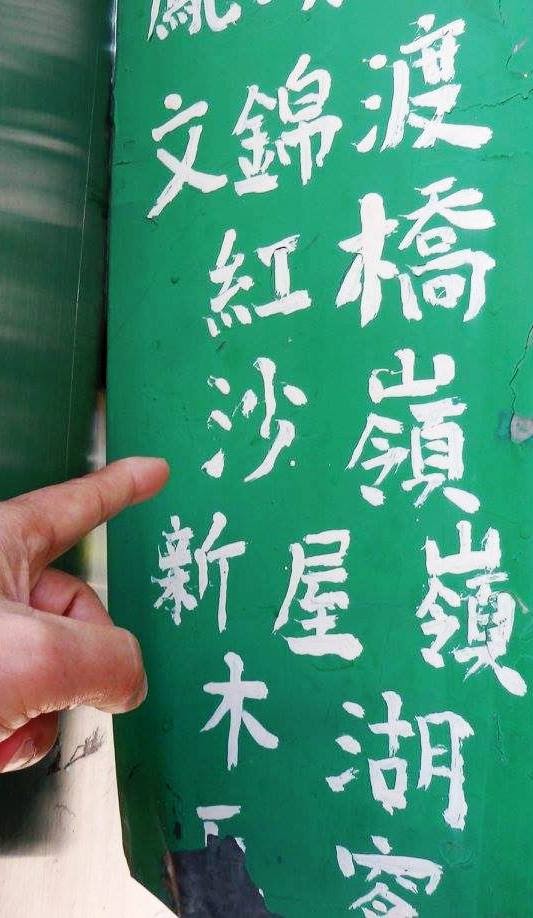 文錦渡
紅橋
沙嶺
新屋嶺
木湖